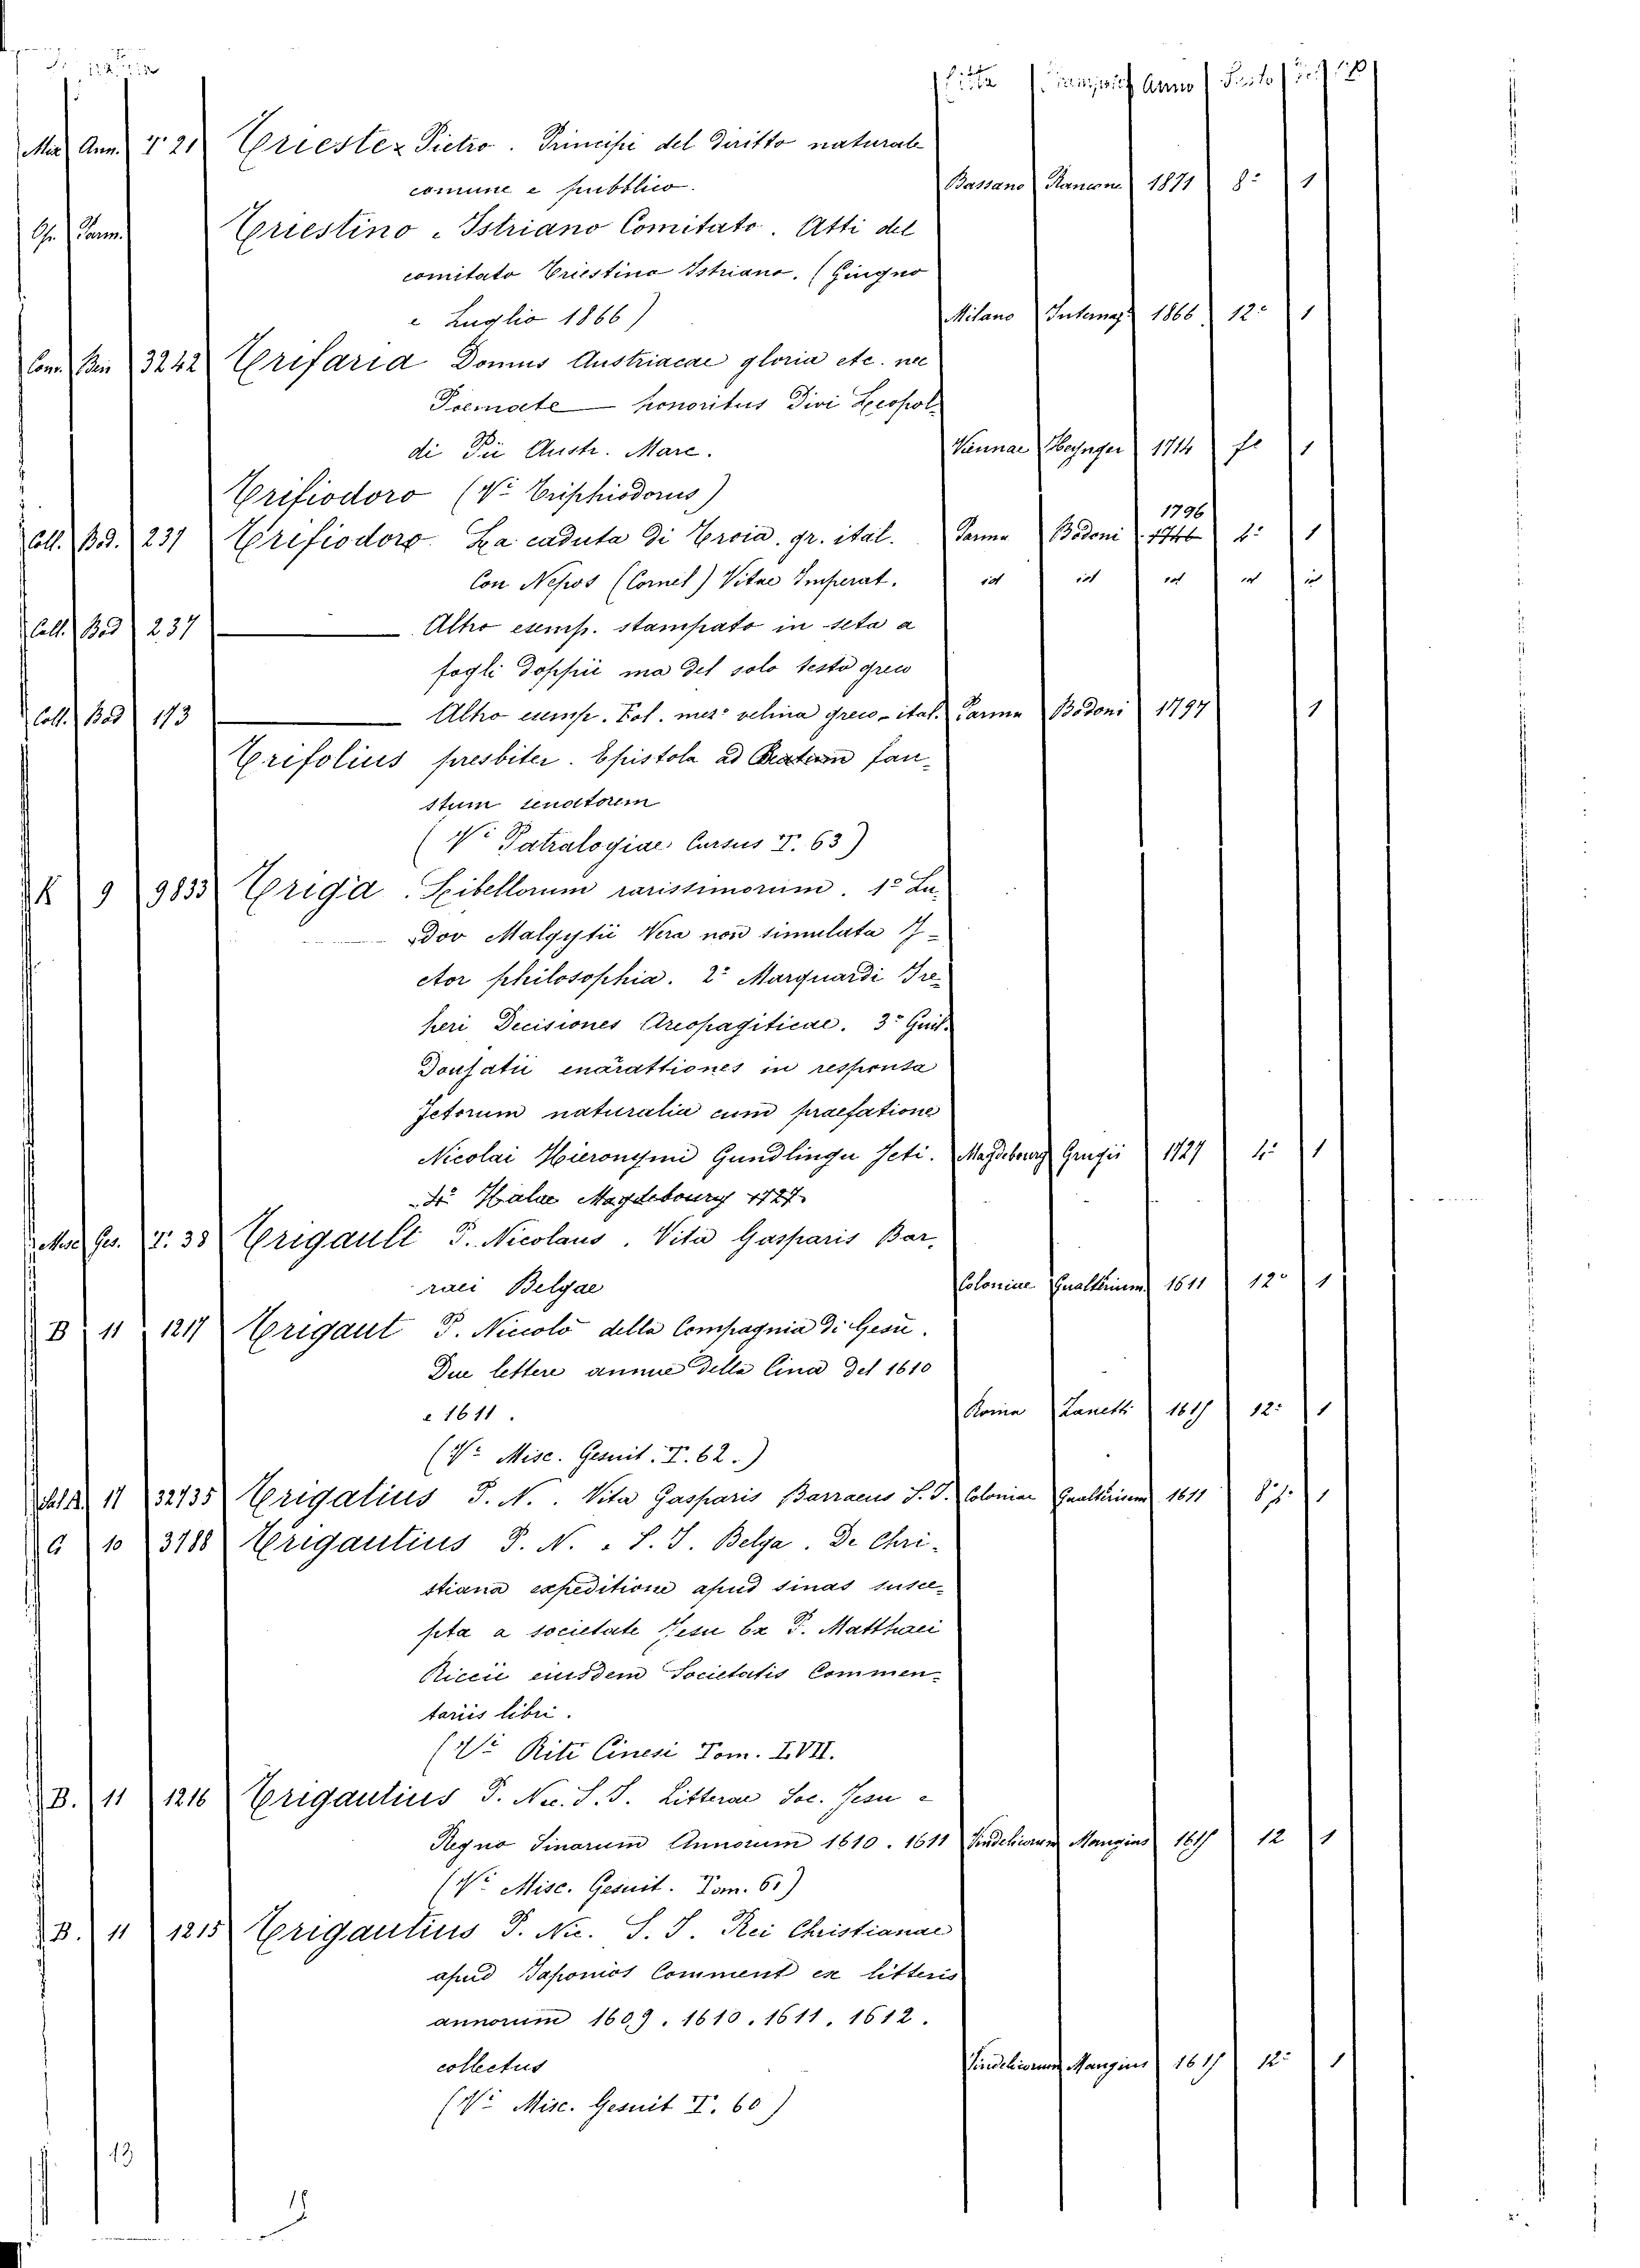 Città Anno Sesto
Mis Ann. T. 21 Triester Pietro. Principi del Diritto naturale
comune e pubblico. Bassano 1871 8º 1
Op. Parm. Triestino-Istriano Comitato. Atti del
comitato Triestino Istriano. (Giugno
e Luglio 1866) Milano Internaz. 1866 12º 1
Com. Ben 3242 Trifaria Domus Austriacae gloria etc. nec
honoribus Divi Leopol
di Pii Austr. Marc. Viennae Heynger 1714 fº 1
Trifiodoro (Vi Triphiodorus)
1796
Coll. Bod. 237 Trifiodoro. La caduta di Troia. gr. ital. Parma Bodoni 1746 4º 1
Con Nepos (Cornel) Vitae Imperat. id id id id id
Coll. Bod 237 Altro esemp. stampato in seta a
fogli doppii ma del solo testo greco
Coll. Bod 173 Altro esemp. Fol. mezº velina greco-ital. Parma Bodoni 1797 1
Trifolius presbiter. Epistola ad Beatum fau-
stum senatorem
(Vi Patralogiae Cursus T. 63)
K 9 9833 Triga Libellorum rarissimorum. 1º Lu-
dov Malgytii Vera non simulata I-
ctor philosophia. 2º Marquardi Fre-
heri Decisiones Areopagiticae. 3º Guil.
Donsatii enarattiones in responsa
Jctorum naturalia cum praefatione
Nicolai Hieronymi Gundlingii Jcti. Magdebourg Gengii 1727 4º 1
4º Halae Magdebourg 1727.
Misc. Ges. T. 38 Trigault P. Nicolaus. Vita Gasparis Bar-
raei Belgae Coloniae Gualterium 1611 12º 1
B 11 1217 Trigaut P. Niccolò della Compagnia di Gesù.
Due lettere annue della Cina del 1610
e 1611. Roma Zanetti 1615 12º 1
(Vi Misc. Gesuit. T. 62.)
11 32735 Trigatius P. N. Vita Gasparis Barraeus S. J. Coloniae Gualterium 1611 8º 1
G 10 3788 Trigautius P. N. S. J. Belga. De Chri-
stiana expeditione apud sinas susce-
pta a societate Jesu Ex P. Matthaei
Riccii eiusdem Societatis Commen-
tariis libri.
(Vi Riti Cinesi Tom. LVII.
B. 11 1216 Trigautius P. Nic. S. J. Litterae Soc. Jesu e
Regno Sinarum Annorum 1610. 1611 Vindelicorum Mangius 1615 12 1
(Vi Misc. Gesuit. Tom. 61)
B. 11 1215 Trigautius P. Nic. S. J. Rei Christianae
apud Japonios Comment ex litteris
annorum 1609. 1610. 1611. 1612.
collectus Vindelicorum Mangius 1615 12º 1
(Vi Misc. Gesuit T. 60)
13